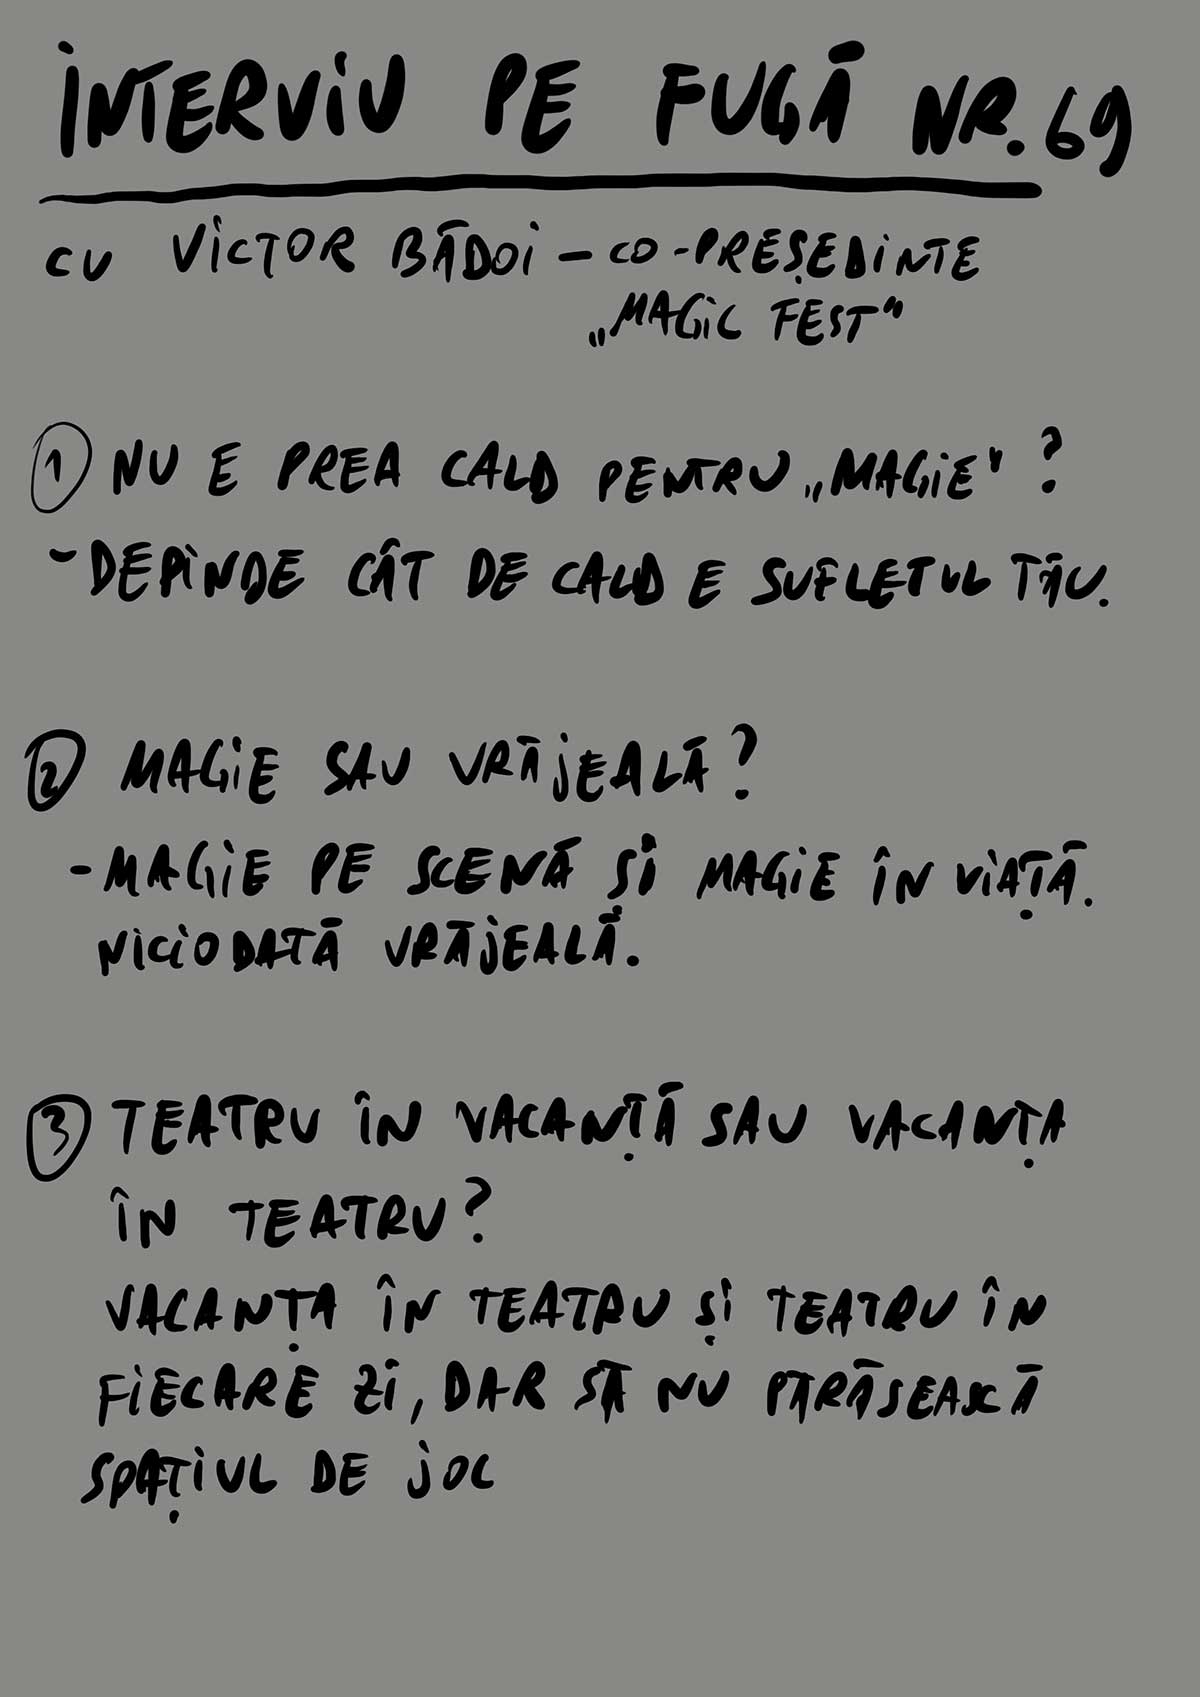 INTERVIU PE FUGĂ NR. 69
CU VICTOR BĂDOI - CO-PREȘEDINTE
„MAGIC FEST"
1 NU E PREA CALD PENTRU „MAGIE"?
- DEPINDE CÂT DE CALD E SUFLETUL TĂU.
2 MAGIE SAU VRĂJEALĂ?
- MAGIE PE SCENĂ ȘI MAGIE ÎN VIAȚĂ.
NICIODATĂ VRĂJEALĂ.
3 TEATRU ÎN VACANȚĂ SAU VACANȚA
ÎN TEATRU?
VACANȚA ÎN TEATRU ȘI TEATRU ÎN
FIECARE ZI, DAR SĂ NU PĂRĂSEASCĂ
SPAȚIUL DE JOC